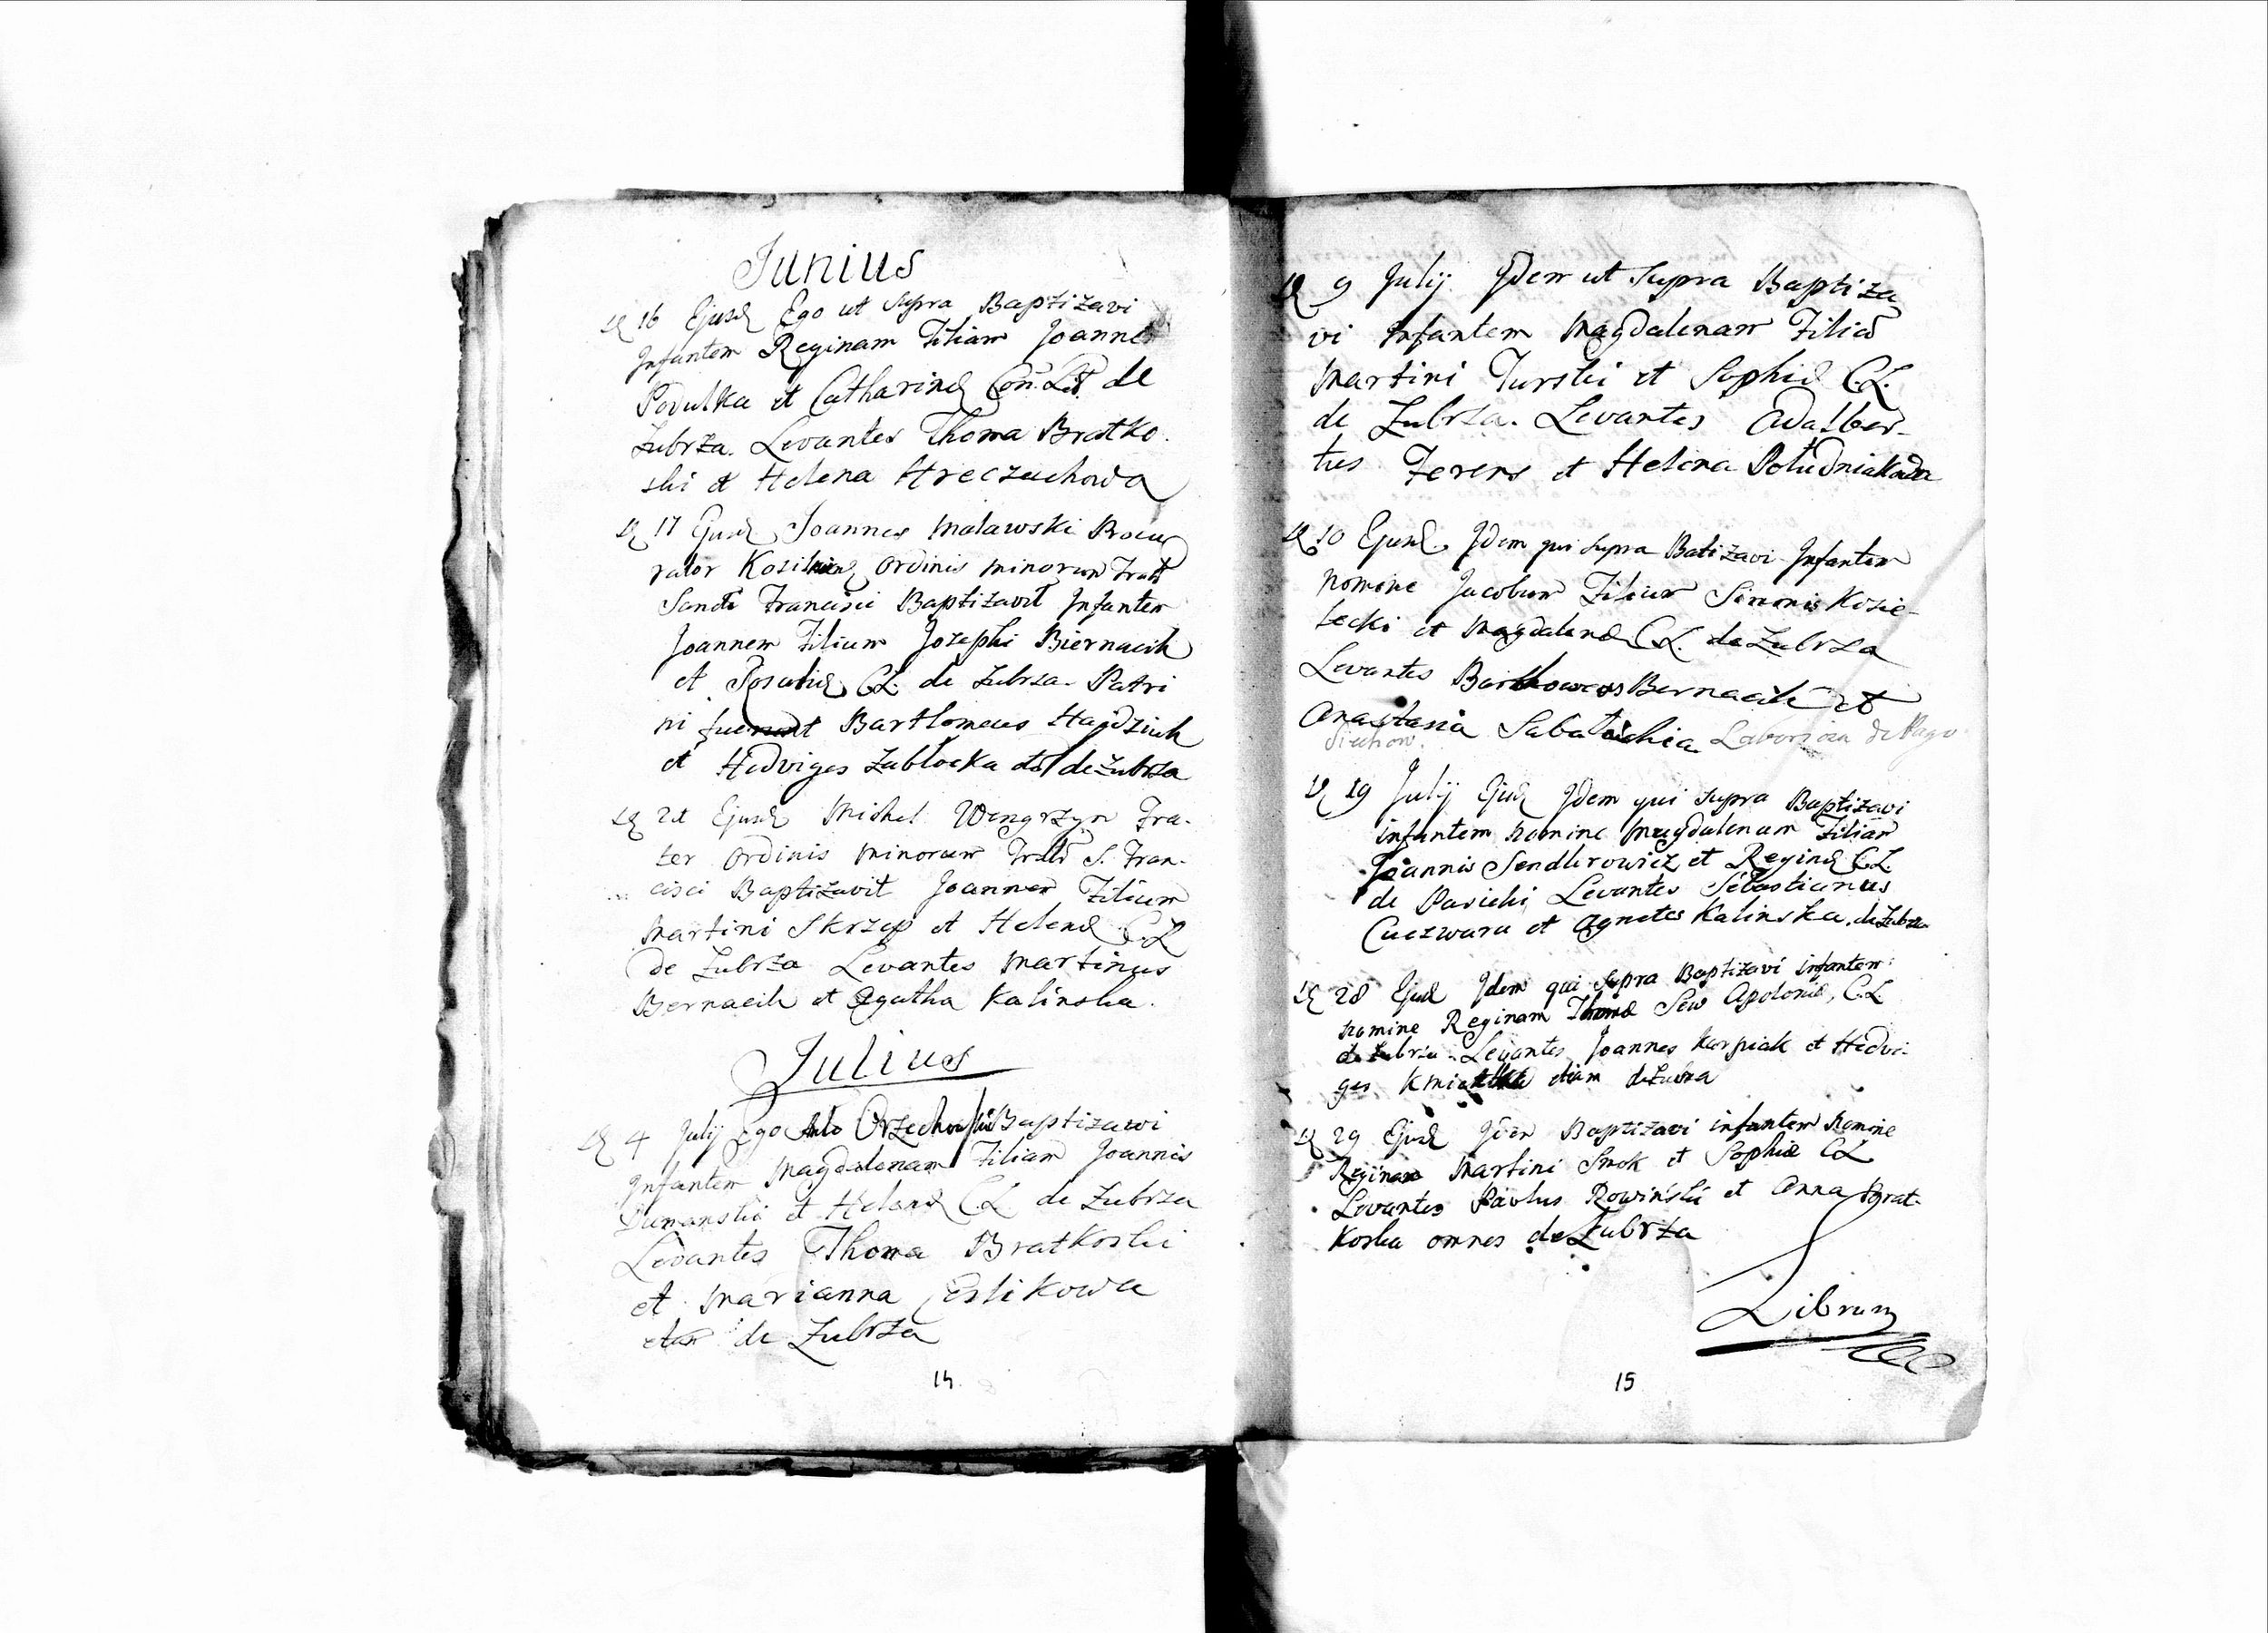 Junius
16 Ejusd Ego ut supra Baptizavi
Infantem Reginam Filiam Joannis
Podulka et Catharinæ Con. Lt. de
Zubrza. Levantes Thoma Bratko-
ski et Helena Hreczuchowa
17 Ejusd Joannes Malawski Procu
rator Ordinis Minorum
Sancti Francisci Baptizavit Infantem
Joannem Filium Josephi Biernacik
et Rosaliæ C.L. de Zubrza. Patri
ni fuerunt Bartlomeus Haydziuk
et Hedviges Zublocka de Zubrza
21 Ejusd Michel Wengrzyn Fra-
ter Ordinis Minorum S. Fran-
cisci Baptizavit Joannem Filium
Martini Skrzep et Helenæ C.L
de Zubrza Levantes Martinus
Bernacik et Agatha Kalinska.
Julius
4 July Ego Orzechowski Baptizawi
Infantem Magdalenam Filiam Joannis
Dumanski et Helenæ C.L. de Zubrza
Levantes Thoma Bratkoski
et Marianna
de Zubrza
14
9 July Idem ut Supra Baptiza
vi Infantem Magdalenam Filiã
Martini Turski et Sophiæ C.L.
de Zubrza. Levantes Adalber-
tus Ferens et Helena Południakowa
10 Ejusd Idem qui supra Batizavi Infantem
Nomine Jacobum Filium Simonis Kosie-
lecki et Magdalenæ C.L. de Zubrza
Levantes Bernacik et
Anastasia de Pago
Siechow.
19 July Ejusd Idem qui supra Baptizavi
infantem nomine Magdalenam Filiam
Joannis Sendlerowicz et Reginæ C.L
de Pasieki Levantes Sebastianus
Caczwara et Agnetes Kalinska. de Zubrza
28 Ejusd Idem qui Supra Baptizavi infantem
nomine Reginam Thomæ Sew Apoloniæ, C.L
de Zubrza. Levantes Joannes Karpiak et Hedvi-
ges etiam de Zubrza
29 Ejusd Idem Baptizavi infantem Nomine
Reginam Martini Smok et Sophiæ C.L
Levantes Pavlus Rowinski et Anna Brat-
koska omnes de Zubrza
Librum
15